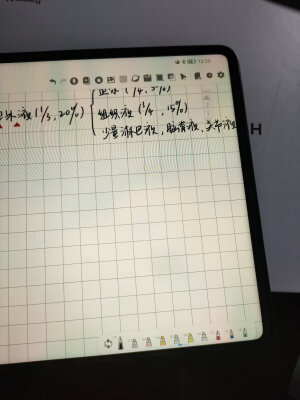 12:25
血浆(1/4,5%)
胞外液(1/3,20%)
组织液(3/4,15%)
少量淋巴液,脑脊液,关节液
H